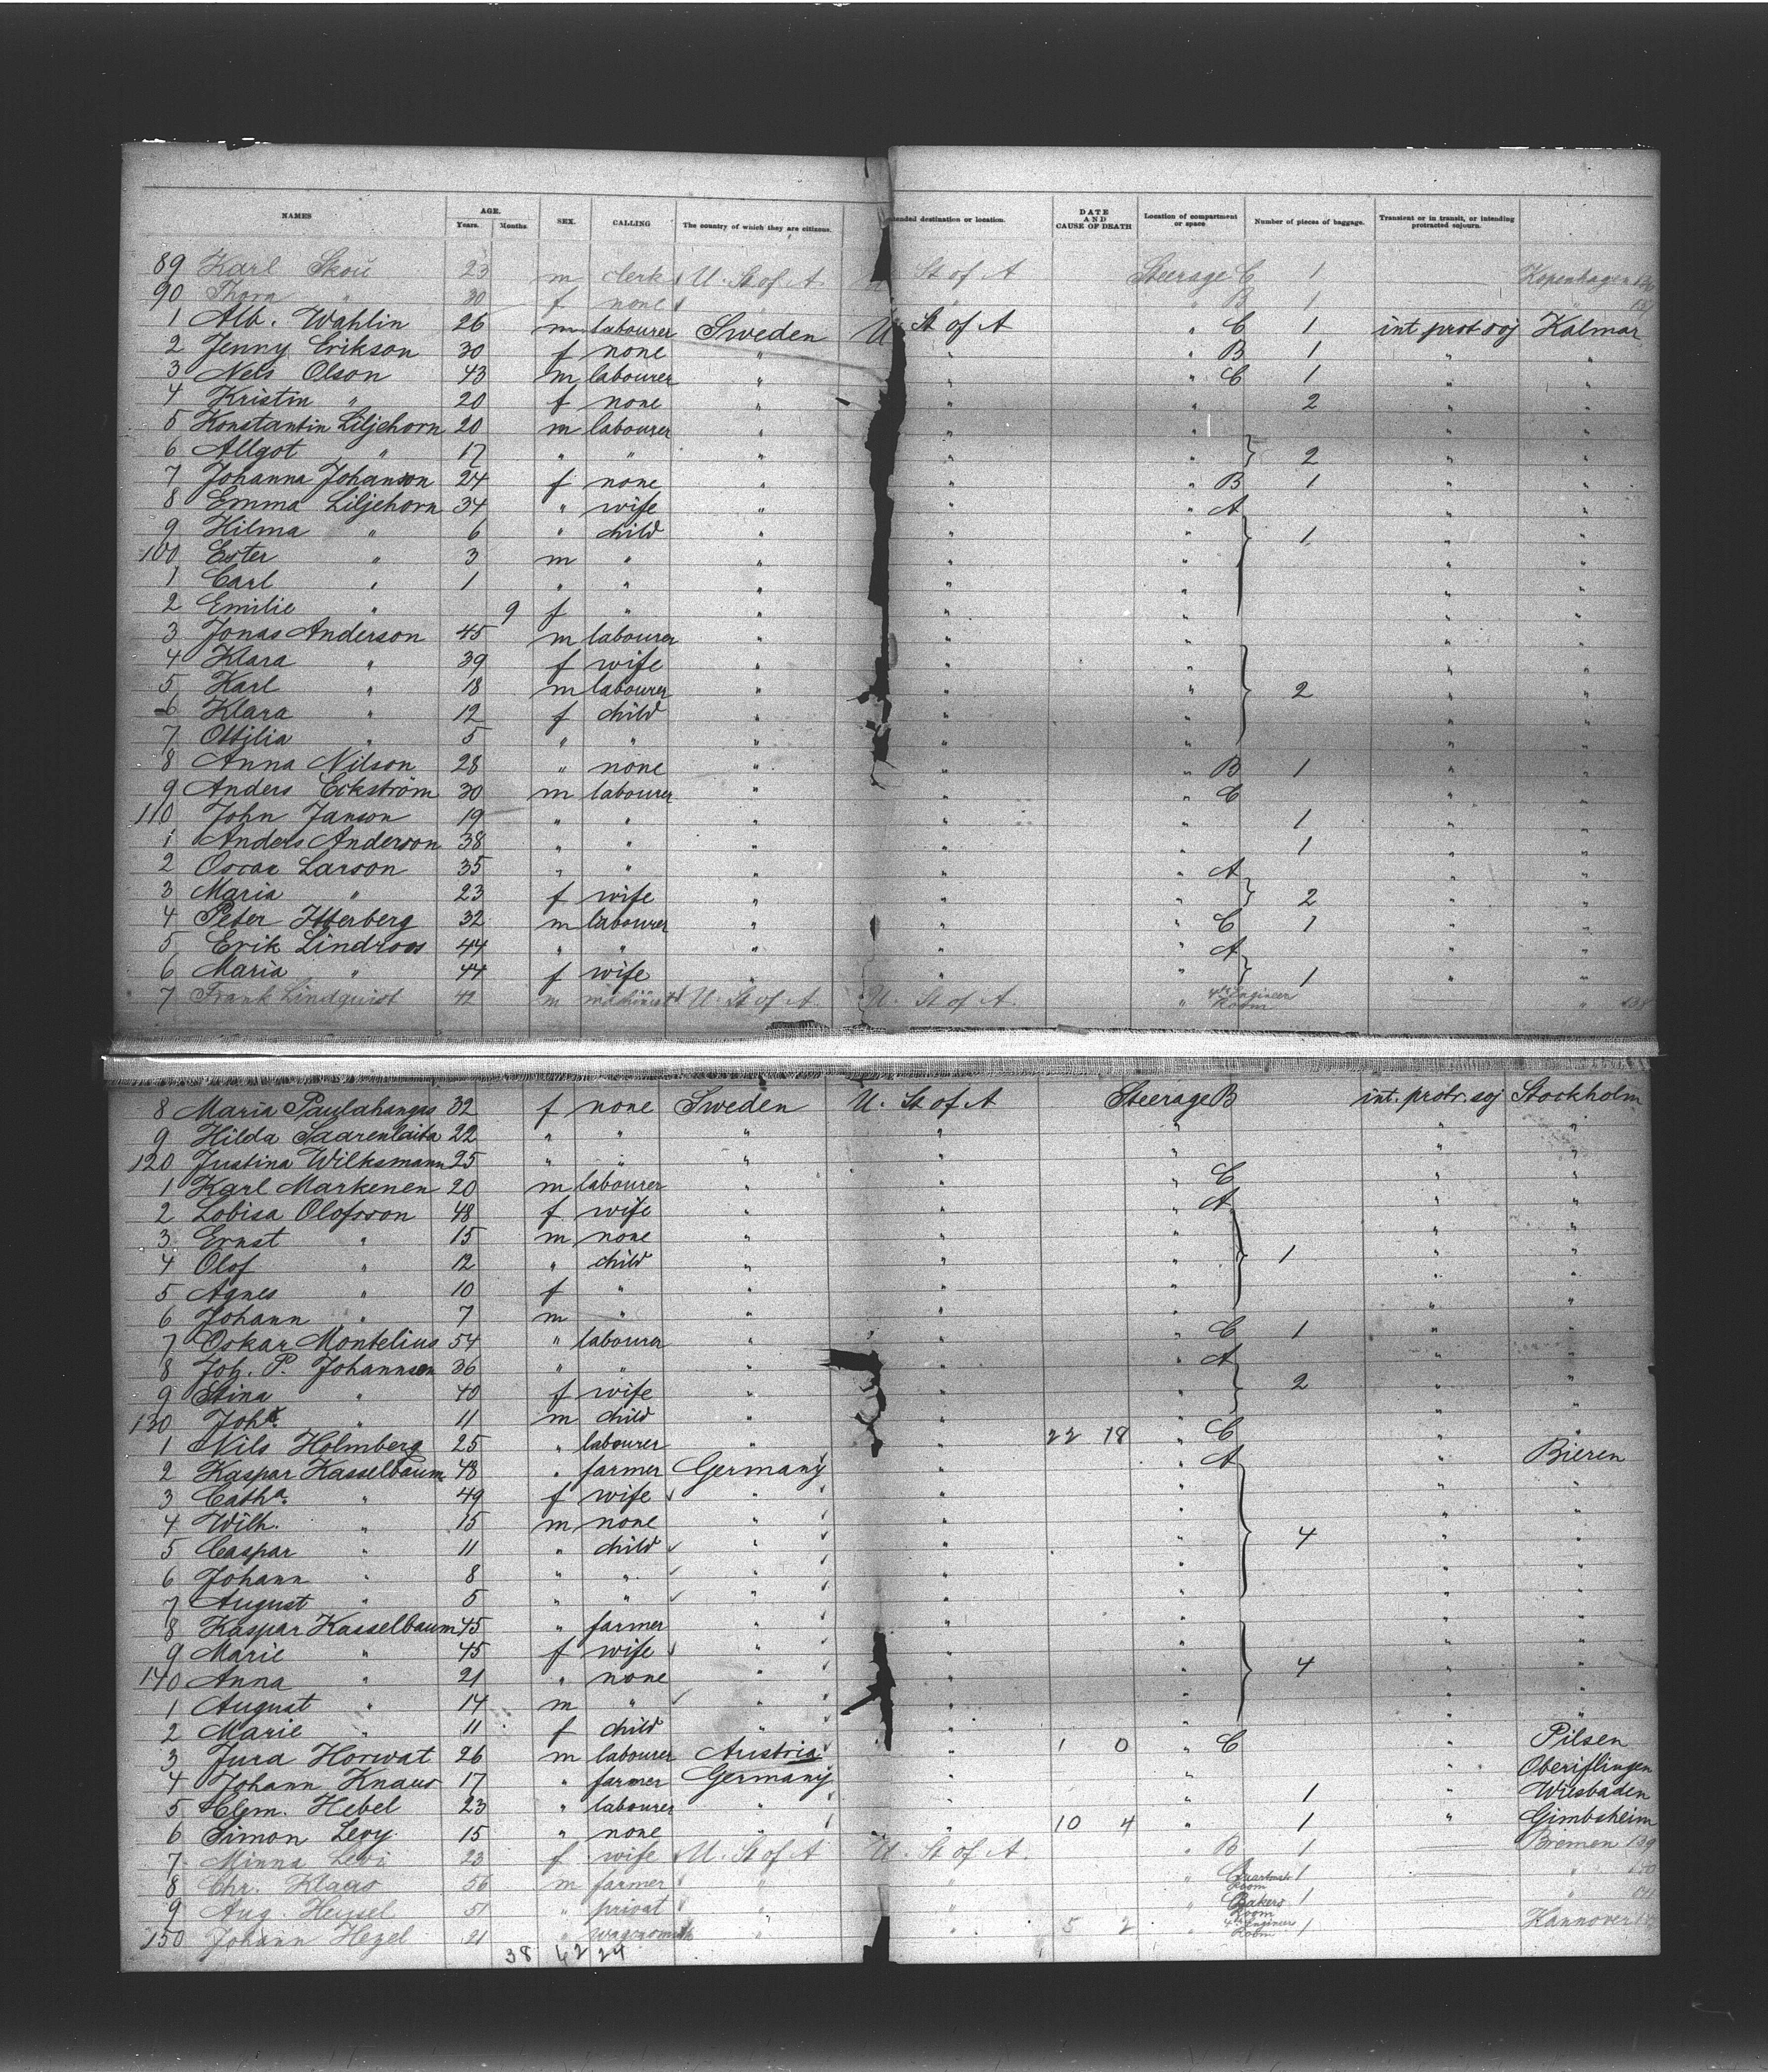 NAMES AGE. Years. Months. SEX. CALLING The country of which they are citizens. tended destination or location. DATE AND CAUSE OF DEATH Location of compartment or space. Number of pieces of baggage. Transient or in transit, or intending protracted sojourn.
89 Karl Skou 23 m clerk U. St of A St of A Steerage C 1 Kopenhagen
90 Thora " 30 f none " " " B 1 "
1 Alb. Wahlin 26 m labourer Sweden U St of A " C 1 int prot soj Kalmar
2 Jenny Erikson 30 f none " " " B 1 " "
3 Nels Olson 43 m labourer " " " C 1 " "
4 Kristin " 20 f none " " " 2 " "
5 Konstantin Liljehorn 20 m labourer " " " " "
6 Allgot " 17 " " " " " 2 " "
7 Johanna Johanson 24 f none " " " B 1 " "
8 Emma Liljehorn 34 " wife " " " A " "
9 Hilma " 6 " child " " " 1 " "
100 Ester " 3 m " " " " " "
1 Carl " 1 " " " " " " "
2 Emilie " 9 f " " " " " "
3 Jonas Anderson 45 m labourer " " " " "
4 Klara " 39 f wife " " " " "
5 Karl " 18 m labourer " " " 2 " "
6 Klara " 12 f child " " " " "
7 Ottilia " 5 " " " " " " "
8 Anna Nilson 28 " none " " " B 1 " "
9 Anders Eckström 30 m labourer " " " C " "
110 John Janson 19 " " " " " 1 " "
1 Anders Anderson 38 " " " " " 1 " "
2 Oscar Larson 35 " " " " " A " "
3 Maria " 23 f wife " " " 2 " "
4 Peter Itterberg 32 m labourer " " " C 1 " "
5 Erik Lindroos 44 " " " " " A " "
6 Maria " 44 f wife " " " 1 " "
7 Frank Lindquist 42 m machinist U. St of A U. St of A " 4th Engineer Room " 138
8 Maria Paulahangas 32 f none Sweden U. St of A Steerage B int. protr. soj Stockholm
9 Hilda Saarenlaita 22 " " " " " " "
120 Justina Wilksmann 25 " " " " " " "
1 Karl Markenen 20 m labourer " " " C " "
2 Lobisa Olofsson 48 f wife " " " A " "
3 Ernst " 15 m none " " " " "
4 Olof " 12 " child " " " 1 " "
5 Agnes " 10 f " " " " " "
6 Johann " 7 m " " " " " "
7 Oskar Montelius 54 " labourer " " " C 1 " "
8 Joh. P. Johannsen 36 " " " " " A " "
9 Stina " 40 f wife " " " 2 " "
130 Joh. " 11 m child " " " " "
1 Nils Holmberg 25 " labourer " " 22 18 " C " "
2 Kaspar Kasselbaum 48 " farmer Germany " " A " Bieren
3 Catha. " 49 f wife " " " " "
4 Wilh. " 15 m none " " " " "
5 Caspar " 11 " child " " " 4 " "
6 Johann " 8 " " " " " " "
7 August " 5 " " " " " " "
8 Kaspar Kasselbaum 45 " farmer " " " " "
9 Marie " 45 f wife " " " " "
140 Anna " 21 " none " " " 4 " "
1 August " 14 m " " " " " "
2 Marie " 11 f child " " " " "
3 Jura Horwat 26 m labourer Austria " 1 0 " C " Pilsen
4 Johann Knaus 17 " farmer Germany " " " Oberiflingen
5 Clem. Hebel 23 " labourer " " " 1 " Wiesbaden
6 Simon Levy 15 " none " " 10 4 " 1 " Gimbsheim
7 Minna Levi 23 f wife U. St of A U. St of A. " B 1 Bremen 139
8 Chr. Klaas 56 m farmer " " " Room 1 "
9 Aug. Heusel 51 " privat " " " Bakers Room 1 "
150 Johann Hezel 21 " " " 5 2 " 4th Engineer Room 1 Hannover
38 62 24